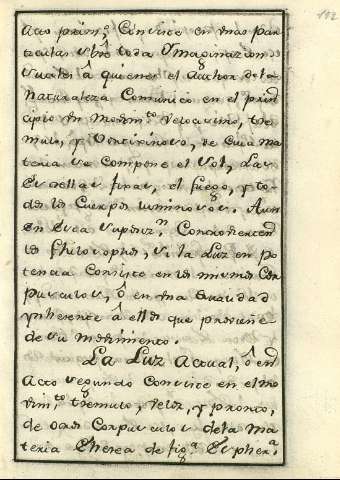 112
Acto prim.º Consiste en unas par
ticulas sobre toda Ymaginacion
sutiles â quienes el Author dela
Naturaleza Comunicó en el prin
cipio un Movim.to velocisimo, tre
mulo, y Vortiginoso, de Cuia ma
teria se Compone el Sol, Las
Estrellas fixas, el fuego, y to-
dos los Cuerpos luminosos. Aun
en Esta Suposiz.n Controvierten
los Philosophos, si la Luz en po
tencia Consiste en los mismos Cor
pusculos, ô en una qualidad
ynherente â ellos que proviene
de su movimiento.
La Luz Actual, ô en
Acto segundo Consiste en el mo
vim.to tremulo, veloz, y prompto,
de otros Corpusculos dela ma
teria Etherea de fig.ª Espheri.ª